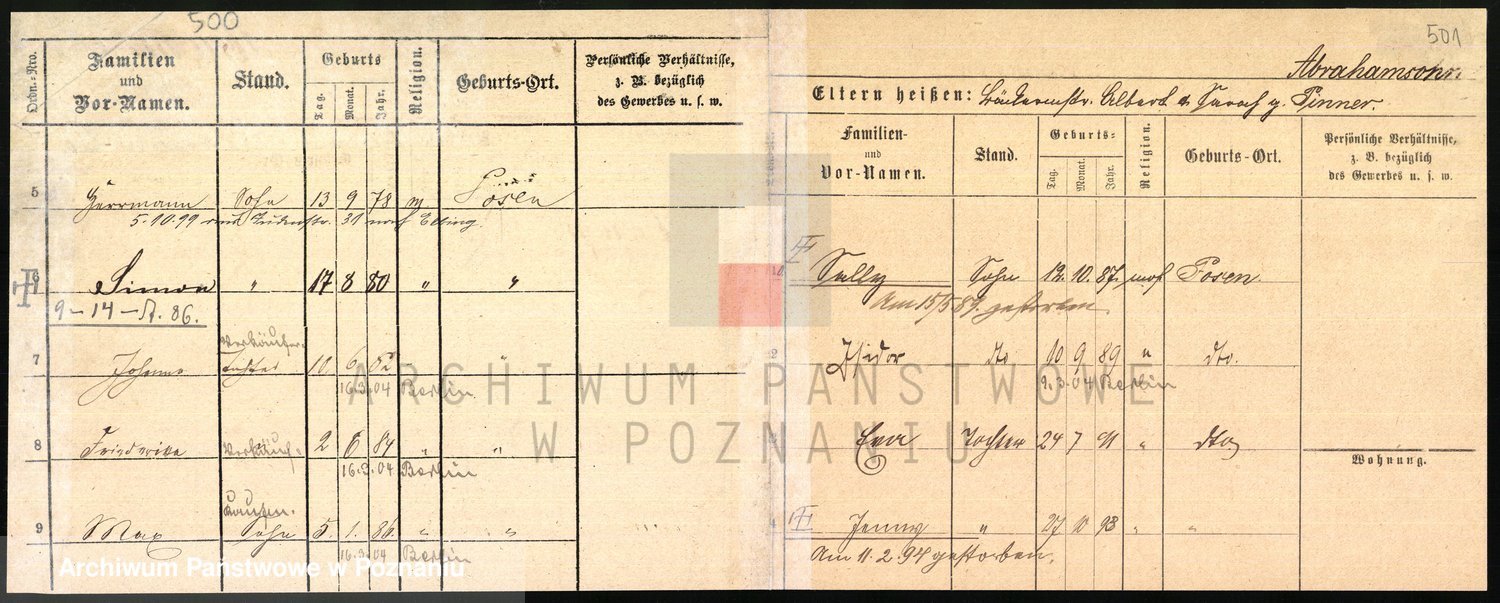 500
Ordn.-Nro.
Familien und Vor-Namen.
Stand.
Geburts
Tag. Monat. Jahr.
Religion.
Geburts-Ort.
Persönliche Verhältnisse, z. B. bezüglich des Gewerbes u. s. w.
5 Herrmann Sohn 13 9 78 m Posen
5.10.99 Judenstr. 31 nach Elbing.
6 Simon " 17 8 80 " "
9-14-A. 86.
Verkäufer.
7 Johanna Tochter 10. 6 82 "
16.3.04 Berlin
8 Friederike Verkäuf. 2 6 84 " "
16.3.04 Berlin
9 Max Kaufm. Sohn 5. 1. 86. " "
16.3.04 Berlin
501
Abrahamsohn.
Eltern heißen: Bäckermstr. Albert u. Sarah g. Pinner.
Familien- und Vor-Namen.
Stand.
Geburts-
Tag. Monat. Jahr.
Religion.
Geburts-Ort.
Persönliche Verhältnisse, z. B. bezüglich des Gewerbes u. s. w.
Sally Sohn 12. 10. 87. mos Posen.
Am 15/5 89. gestorben
2 Isidor dto 10 9 89 " dto.
2.3.04 Berlin
3 Eva Tochter 24 7 91 " dto
Wohnung.
4 Jenny " 27 10 93 " "
Am 11.2.94 gestorben.
ARCHIWUM PAŃSTWOWE
W POZNANIU
Archiwum Państwowe w Poznaniu